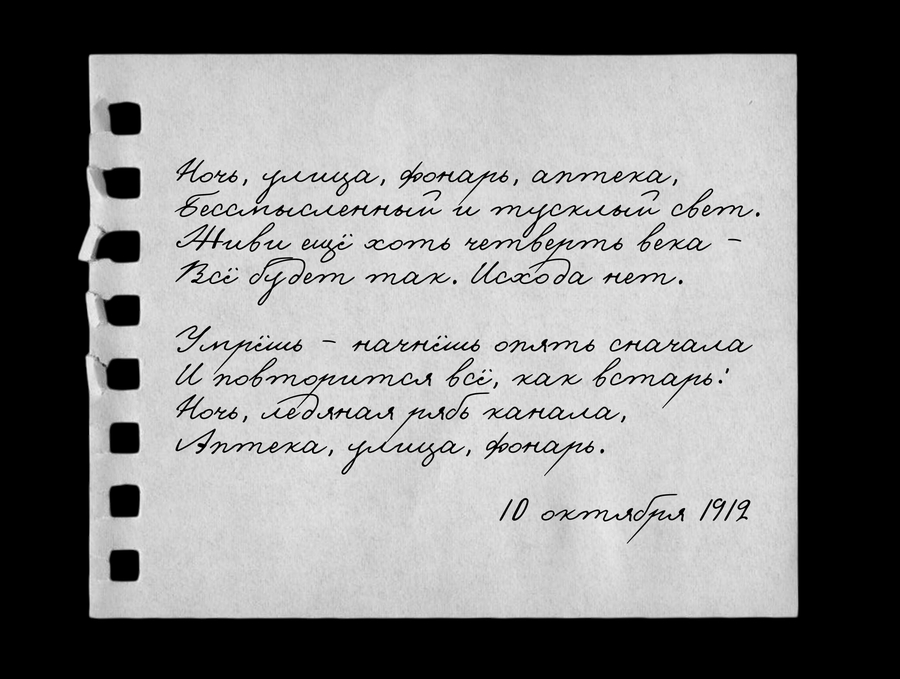 Ночь, улица, фонарь, аптека,
Бессмысленный и тусклый свет.
Живи ещё хоть четверть века –
Всё будет так. Исхода нет.
Умрёшь – начнёшь опять сначала
И повторится всё, как встарь:
Ночь, ледяная рябь канала,
Аптека, улица, фонарь.
10 октября 1912